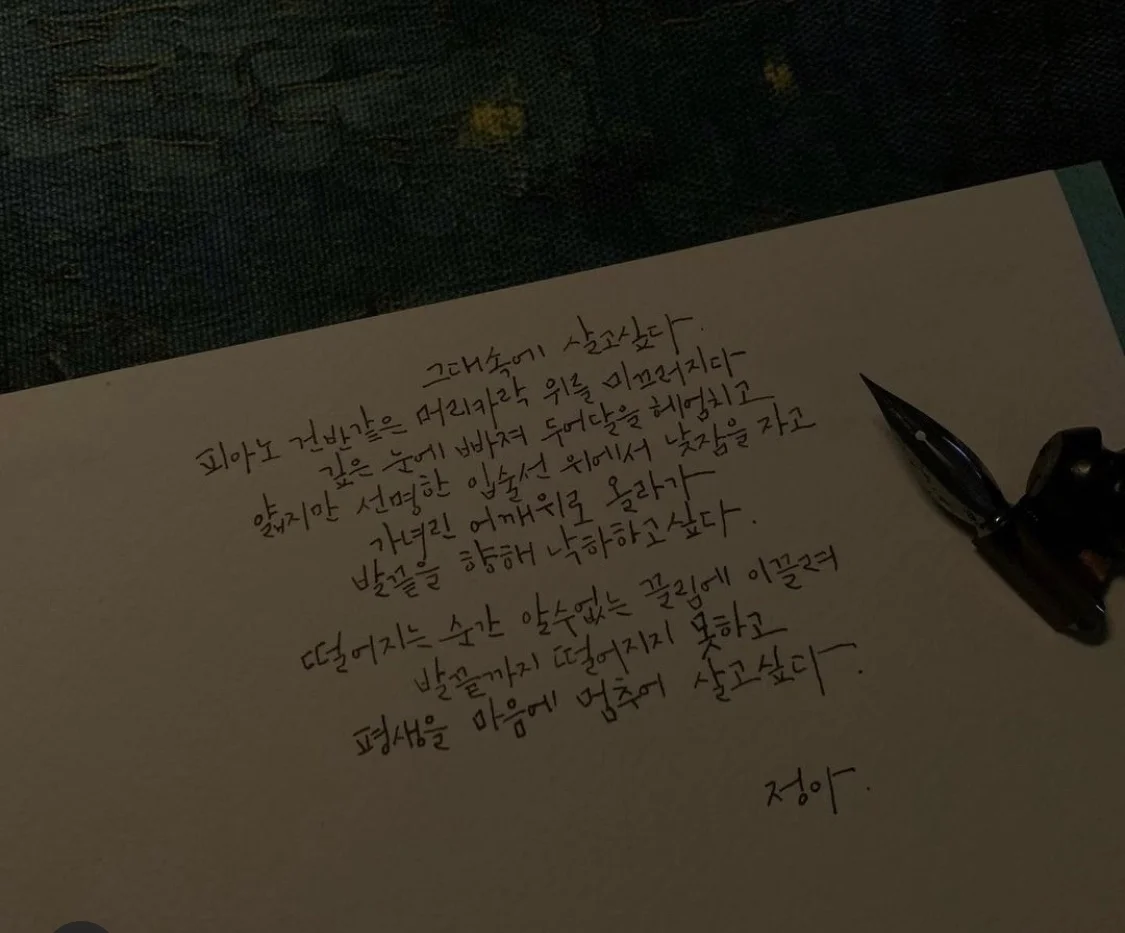 그대속에 살고싶다.
피아노 건반같은 머리카락 위를 미끄러지다
깊은 눈에 빠져 두어달을 헤엄치고
얇지만 선명한 입술선 위에서 낮잠을 자고
가녀린 어깨위로 올라가
발끝을 향해 낙하하고싶다.
떨어지는 순간 알수없는 끌림에 이끌려
발끝까지 떨어지지 못하고
평생을 마음에 멈추어 살고싶다.
정아.